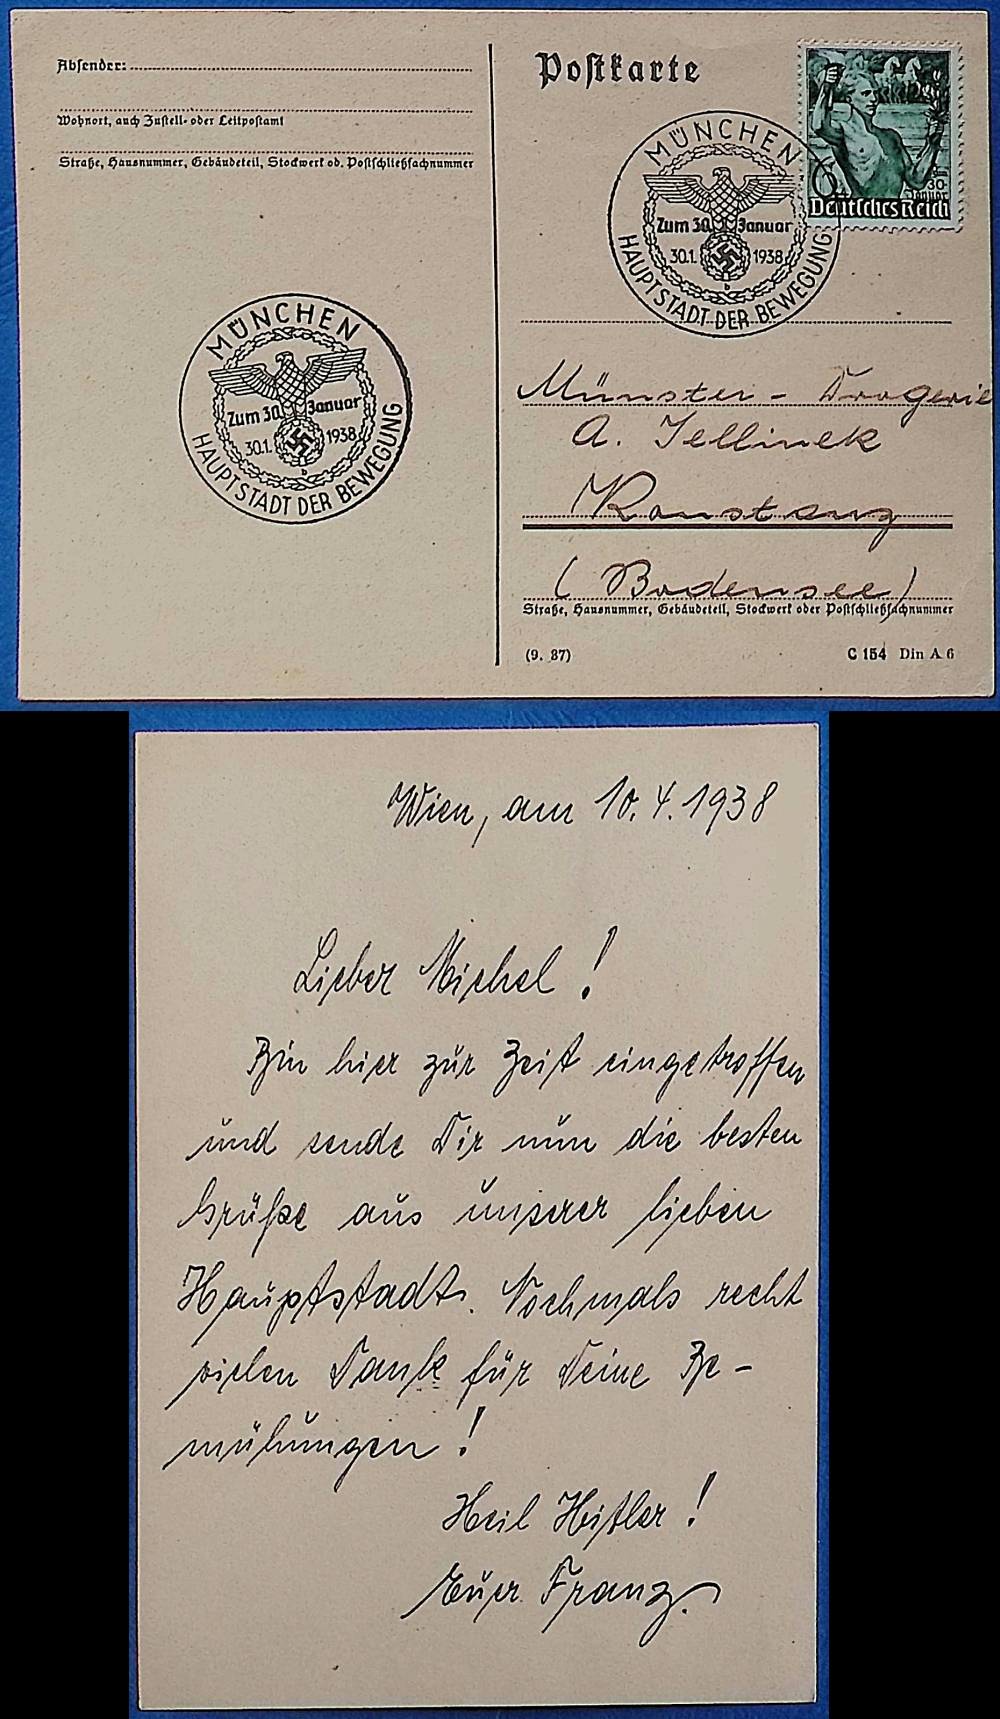 Absender:
Wohnort, auch Zustell- oder Leitpostamt
Straße, Hausnummer, Gebäudeteil, Stockwerk od. Postschließfachnummer
MÜNCHEN
Zum 30. Januar
30.1. 1938
b
HAUPTSTADT DER BEWEGUNG
Postkarte
MÜNCHEN
Zum 30. Januar
30.1. 1938
b
HAUPTSTADT DER BEWEGUNG
6
30.
Januar
Deutsches Reich
Münster - Drogerie
A. Jellinek
Konstanz
(Bodensee)
Straße, Hausnummer, Gebäudeteil, Stockwerk oder Postschließfachnummer
(9. 37)
C 154 Din A 6
Wien, am 10.4.1938
Lieber Michel!
Bin hier zur Zeit eingetroffen
und sende Dir nun die besten
Grüße aus unserer lieben
Hauptstadt. Nochmals recht
vielen Dank für Deine Be-
mühungen!
Heil Hitler!
Euer Franz.